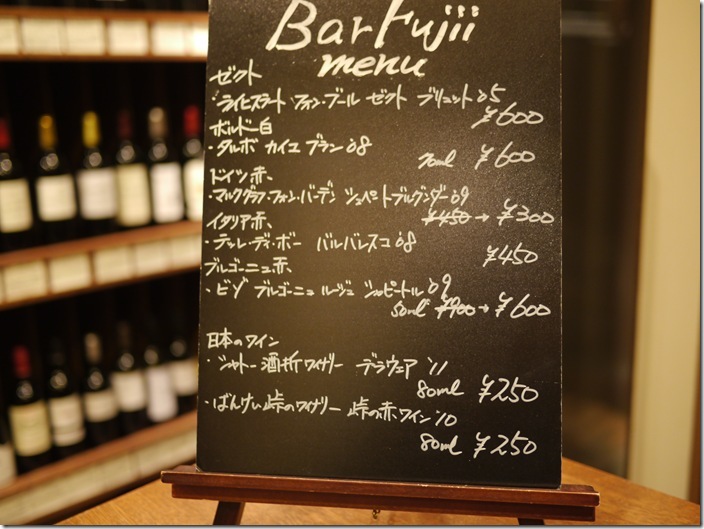 Bar Fujii
menu
ゼクト
・ライヒスラート フォン・ブール ゼクト ブリュット '05
¥600
ボルドー白
・タルボ カイユ ブラン '08
70ml ¥600
ドイツ赤
・マルクグラフ・フォン・バーデン シュペートブルグンダー '09
¥450 → ¥300
イタリア赤
・テッレ・ディ・ボー バルバレスコ '08
¥450
ブルゴーニュ赤
・ビゾ ブルゴーニュ ルージュ シャピートル '09
50ml ¥900 → ¥600
日本のワイン
・シャトー酒折ワイナリー デラウェア '11
80ml ¥250
・ばんけい峠のワイナリー 峠の赤ワイン '10
80ml ¥250